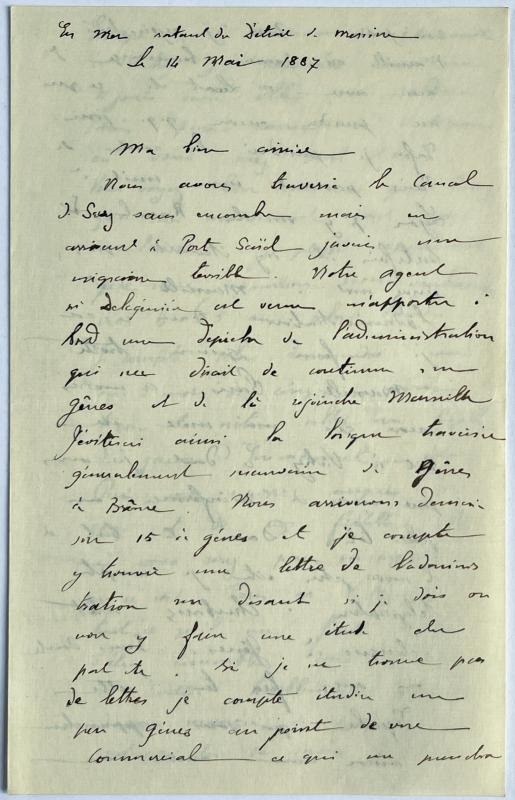 En Mer sortant du Détroit de Messine
le 14 Mai 1887
Ma bien aimée
Nous avons traversé le Canal
de Suez sans encombre mais en
arrivant à Port Saïd j'avais une
migraine terrible. Notre agent
Mr Delagénière est venu m'apporter à
bord une dépêche de l'administration
qui me disait de continuer sur
Gênes et de là rejoindre Marseille
J'éviterai ainsi la longue traversée
généralement mauvaise de Gênes
à Brême. Nous arriverons demain
soir 15 à Gênes et je compte
y trouver une lettre de l'adminis
tration me disant si je dois ou
non y faire une étude du
port etc. Si je ne trouve pas
de lettres je compte étudier un
peu Gênes au point de vue
Commercial ce qui me prendra